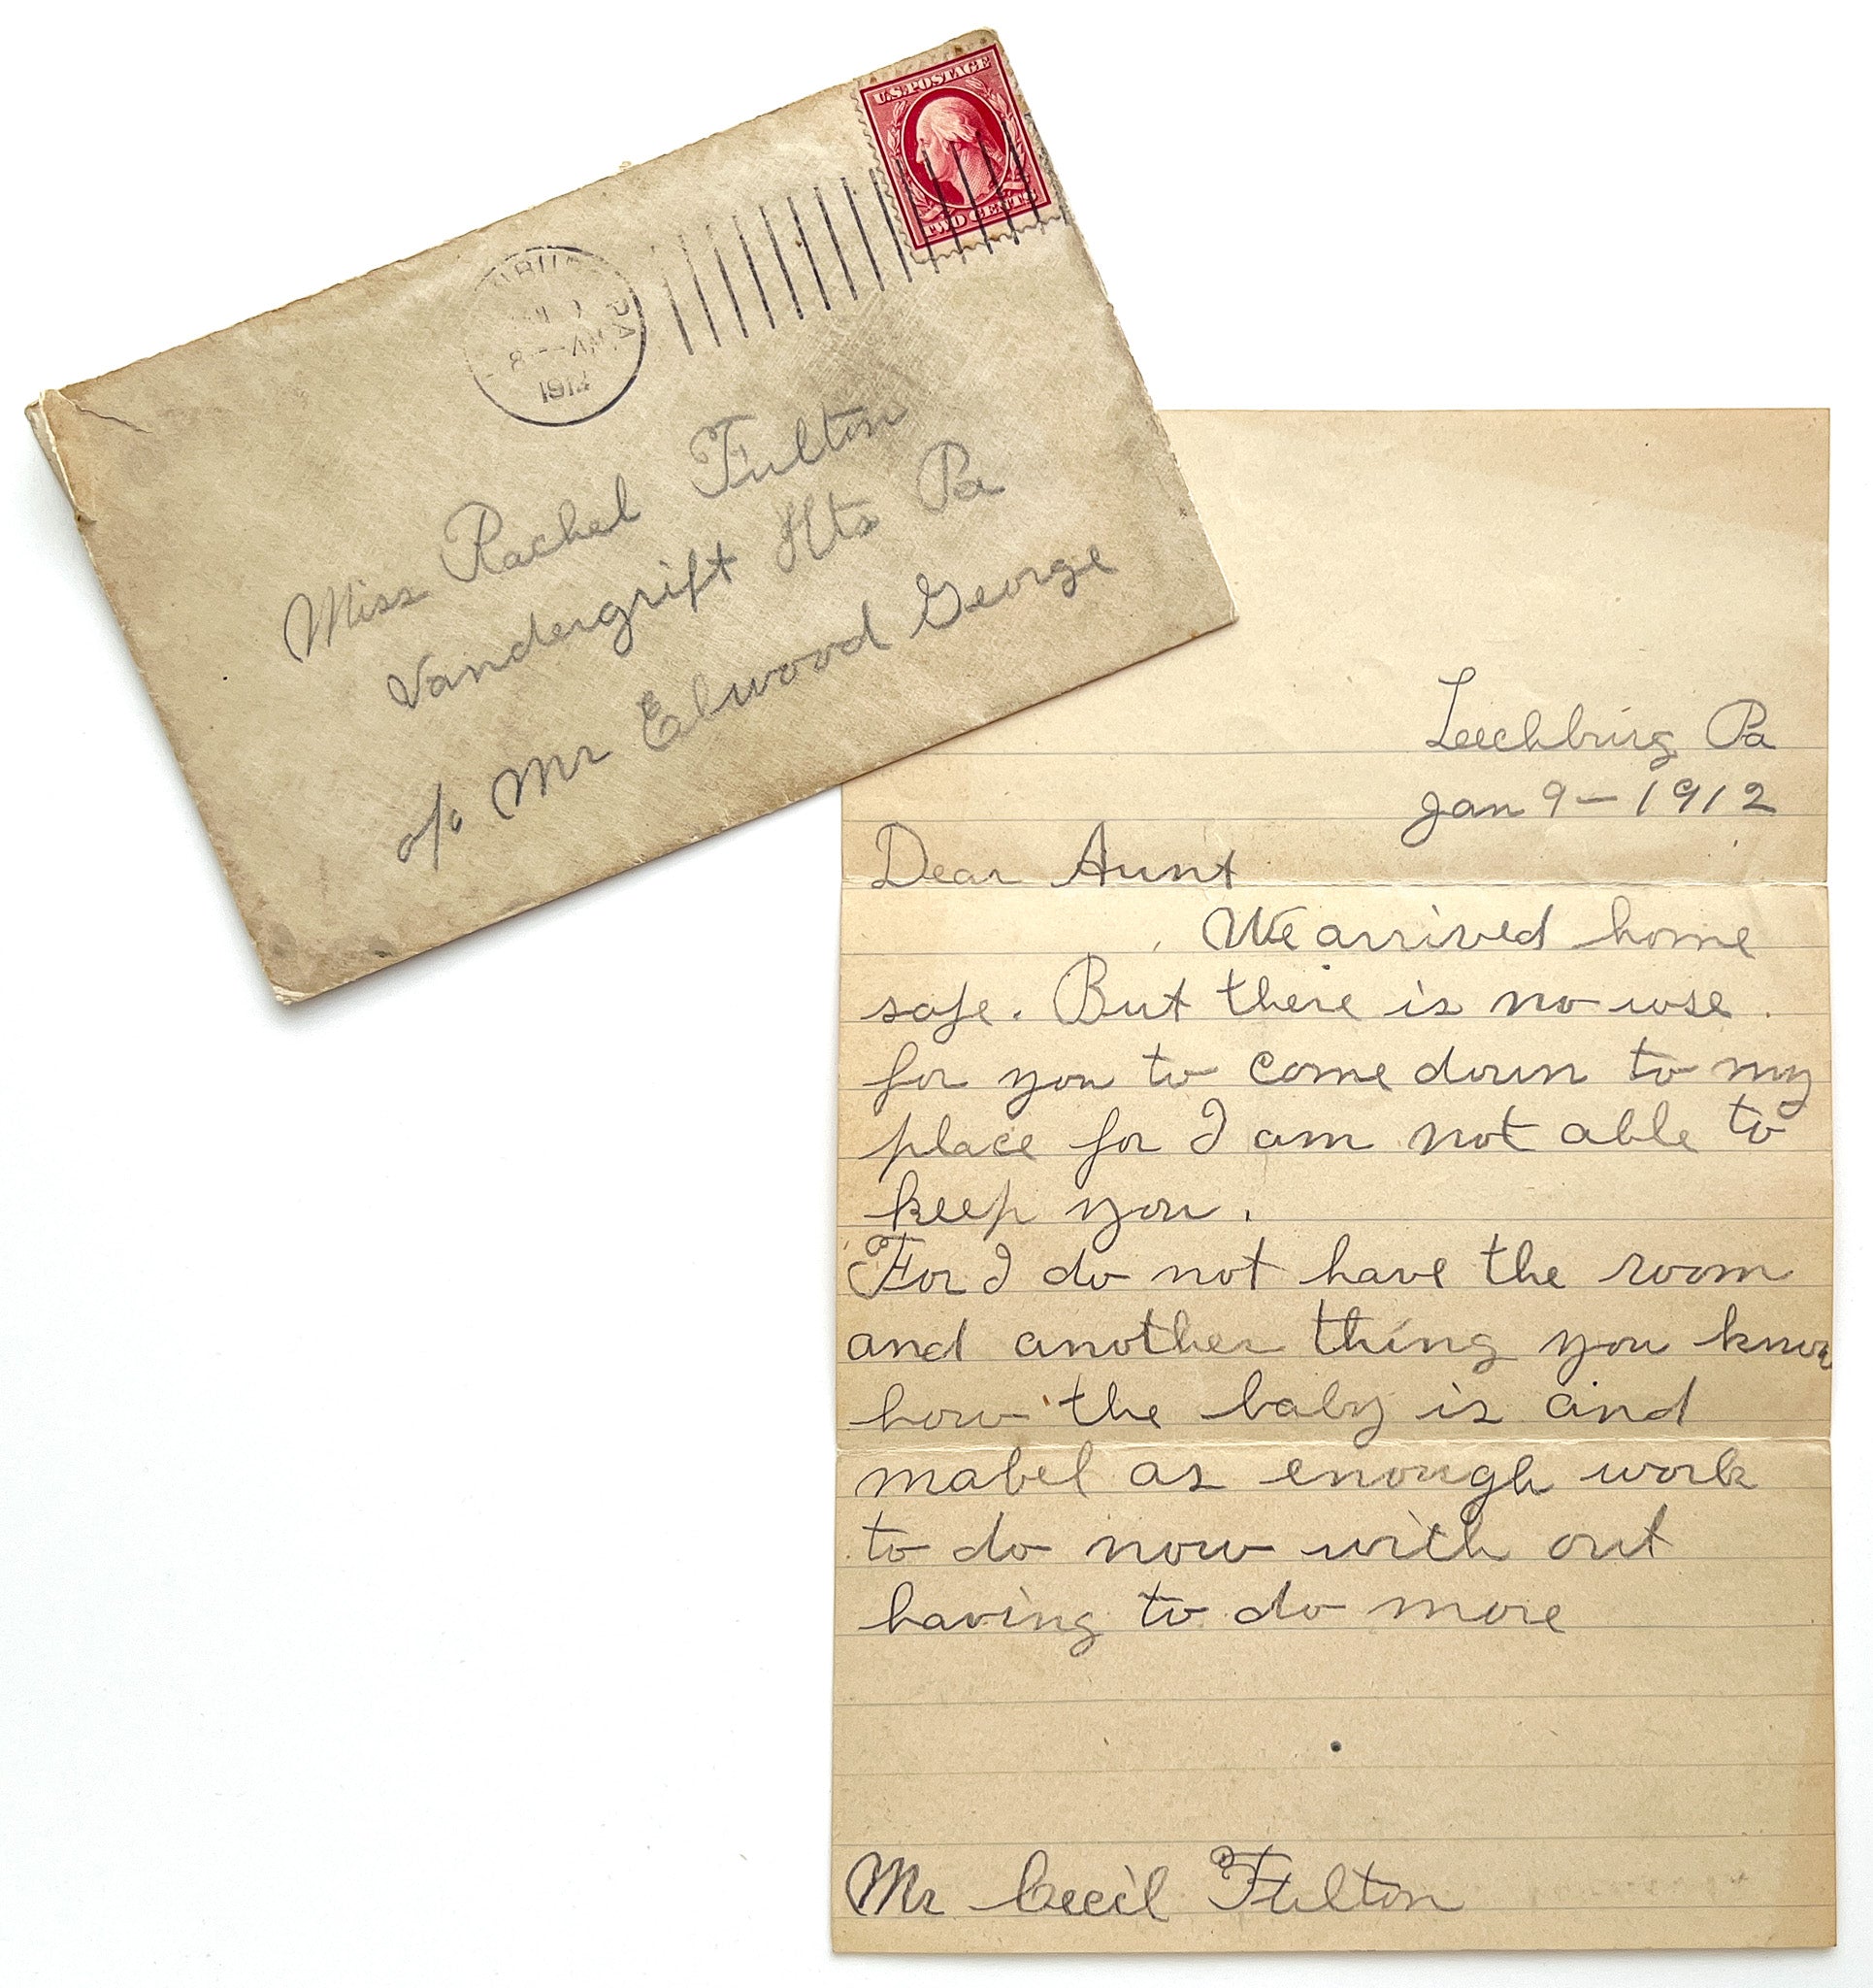 U.S. POSTAGE
TWO CENTS
PA
8
1912
Miss Rachel Fulton
Vandergrift Hts Pa
c/o Mr Elwood George
Leechburg Pa
Jan 9 - 1912
Dear Aunt
We arrived home
safe. But there is no use
for you to come down to my
place for I am not able to
keep you.
For I do not have the room
and another thing you know
how the baby is and
mabel as enough work
to do now with out
having to do more
Mr Cecil Fulton